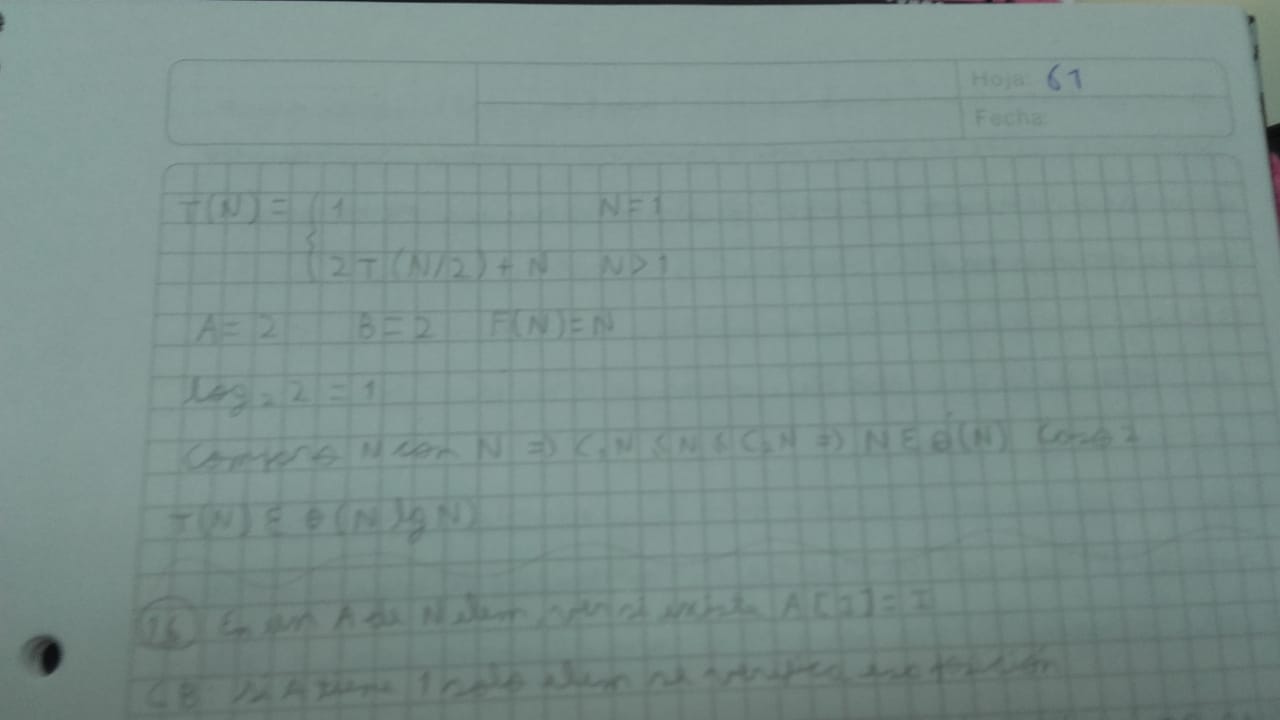 Hoja: 61
Fecha:
T(N) = { 1 N=1
2T(N/2) + N N>1
A=2 B=2 F(N)=N
log₂ 2 = 1
N con N => C₁N ≤ N ≤ C₂N => N ∈ θ(N) Caso 2
T(N) ∈ θ(N lg N)
16 En un A de N elem, ver si existe A[I]=I
CB si A tiene 1 solo elem se verifica